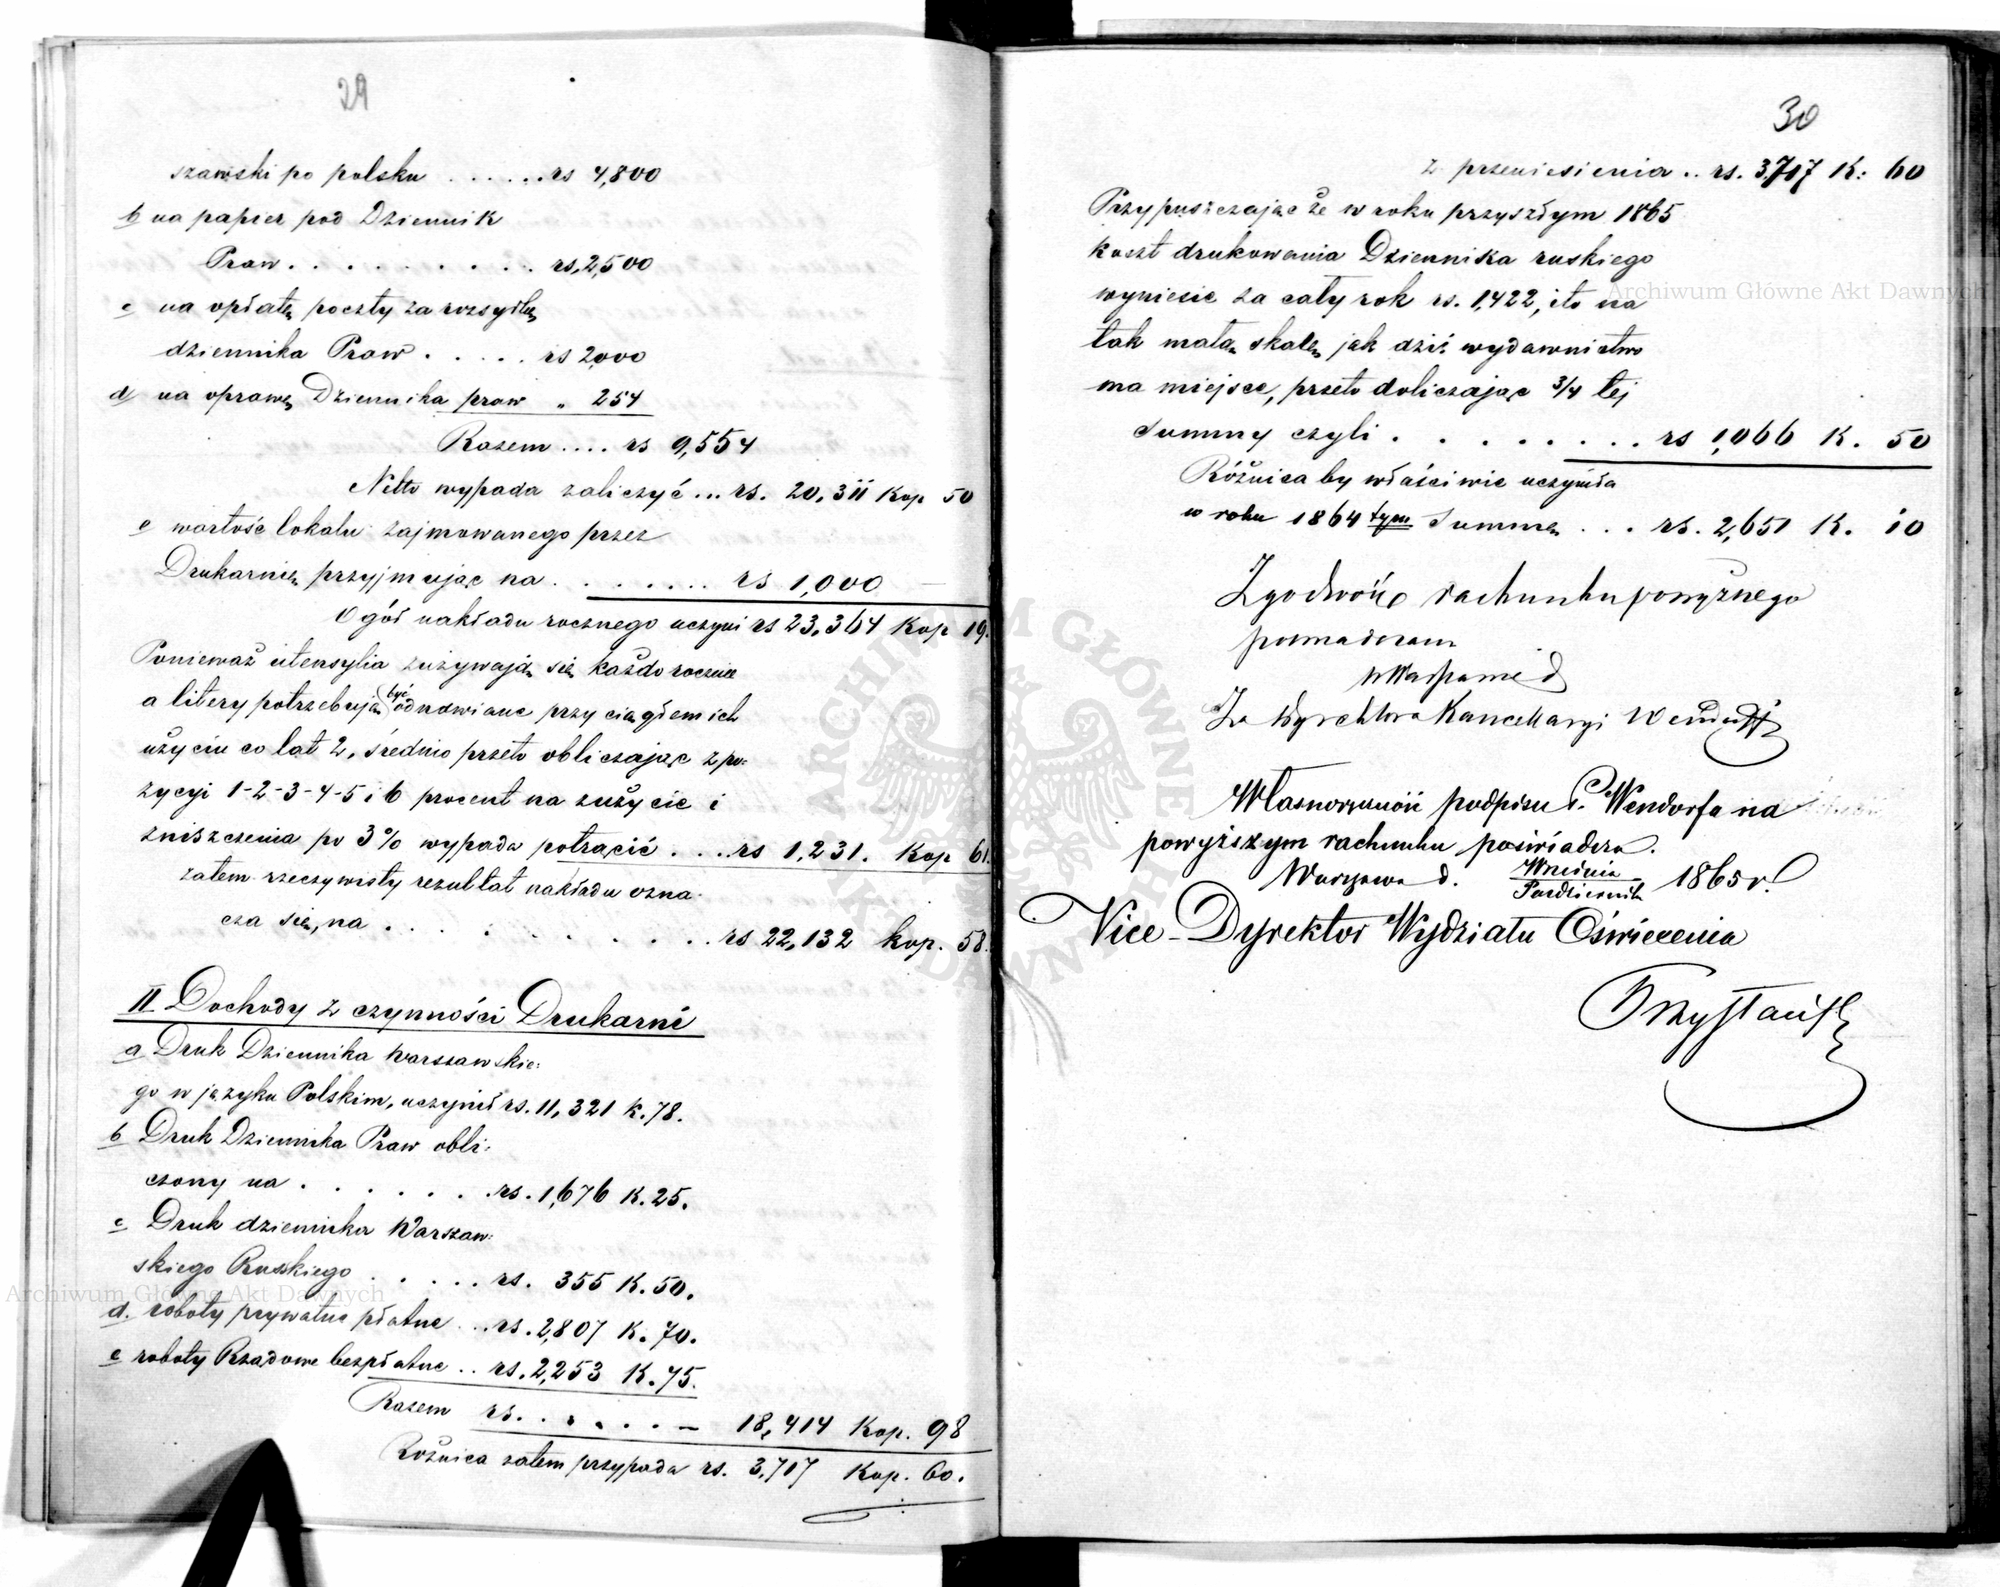 29
szawski po polsku ...... rs 4,800
b na papier pod Dziennik
Praw .......... rs, 2,500
c na opłatę poczty za rozsyłkę
dziennika Praw ..... rs 2,000
d na oprawę Dziennika praw „ 254
Razem .... rs 9,554
Netto wypada zaliczyć ... rs. 20,311 Kop 50
e wartość lokalu zajmowanego przez
Drukarnię przyjmując na ....... rs 1,000 —
Ogół nakładu rocznego uczyni rs 23,364 Kop 19.
Ponieważ utensylia zużywają się każdorocznie
a litery potrzebują być odnawiane przy ciągłem ich
użyciu co lat 2, średnio przeto obliczając z po:
zycyi 1-2-3-4-5 i 6 procent na zużycie i
zniszczenia po 3% wypada potrącić .... rs 1,231. Kop 61.
zatem rzeczywisty rezultat nakładu ozna:
cza się, na .......... rs 22,132 kop. 58.
II Dochody z czynności Drukarni
a Druk Dziennika Warszawskie:
go w języku Polskim, uczynił rs. 11,321 k. 78.
b Druk Dziennika Praw obli:
czony na ....... rs. 1,676 K. 25.
c Druk dziennika Warszaw:
skiego Russkiego ..... rs. 355 K. 50.
d. roboty prywatne płatne ... rs. 2,807 K. 70.
e roboty Rządowe bezpłatne .. rs. 2,253 K. 75.
Razem rs. ...... — 18,414 Kop. 98
Różnica zatem przypada rs. 3,717 Kop. 60.
30
z przeniesienia .. rs. 3,717 K: 60
Przypuszczając że w roku przyszłym 1865
koszt drukowania Dziennika ruskiego
wyniesie za cały rok rs. 1,422, i to na
tak małą skalę, jak dziś wydawnictwo
ma miejsce, przeto doliczając 3/4 tej
Summy czyli ......... rs 1,066 K. 50
Różnica by właściwie uczyniła
w roku 1864 tym Summę ... rs. 2,651 K. 10
Zgodność rachunku powyższego
poswiadczam
w Warszawie d
Za Dyrektora Kancellaryi Wendorff
Własnoręczność podpisu P. Wendorfa na
powyższym rachunku poświadcza.
Warszawa d. Września/Październik 1865 r.
Vice-Dyrektor Wydziału Oświecenia
Przystański
Archiwum Główne Akt Dawnych
Archiwum Główne Akt Dawnych
ARCHIWUM GŁÓWNE AKT DAWNYCH